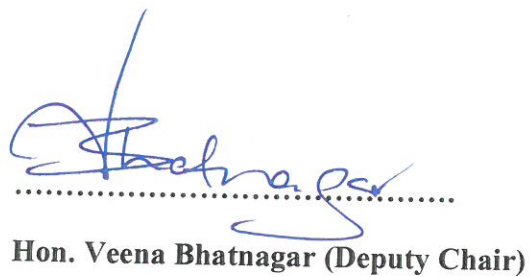 Bhatnagar
Hon. Veena Bhatnagar (Deputy Chair)